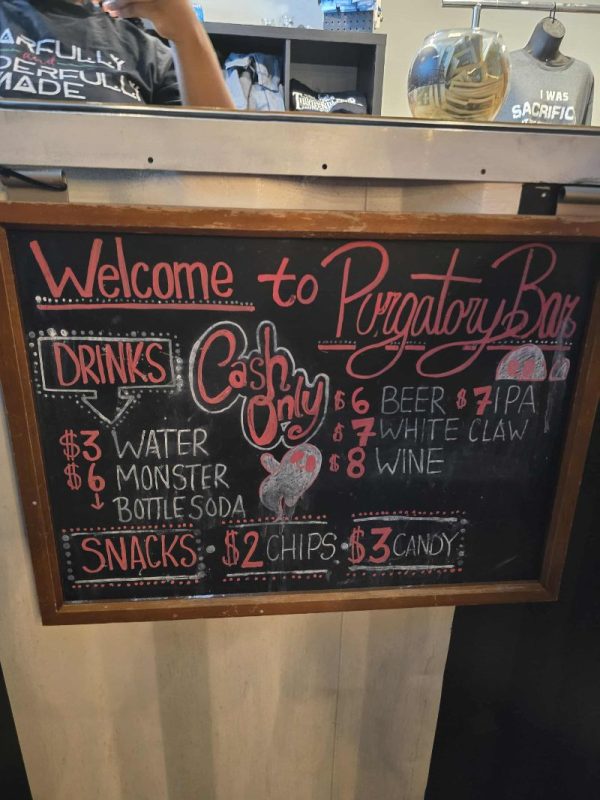 ARFULLY
and
DERFULLY
MADE
I WAS
SACRIFIC
Welcome to Purgatory Bar
DRINKS
Cash Only
$3 WATER
$6 MONSTER
↓ BOTTLE SODA
$6 BEER $7 IPA
$7 WHITE CLAW
$8 WINE
SNACKS $2 CHIPS $3 CANDY